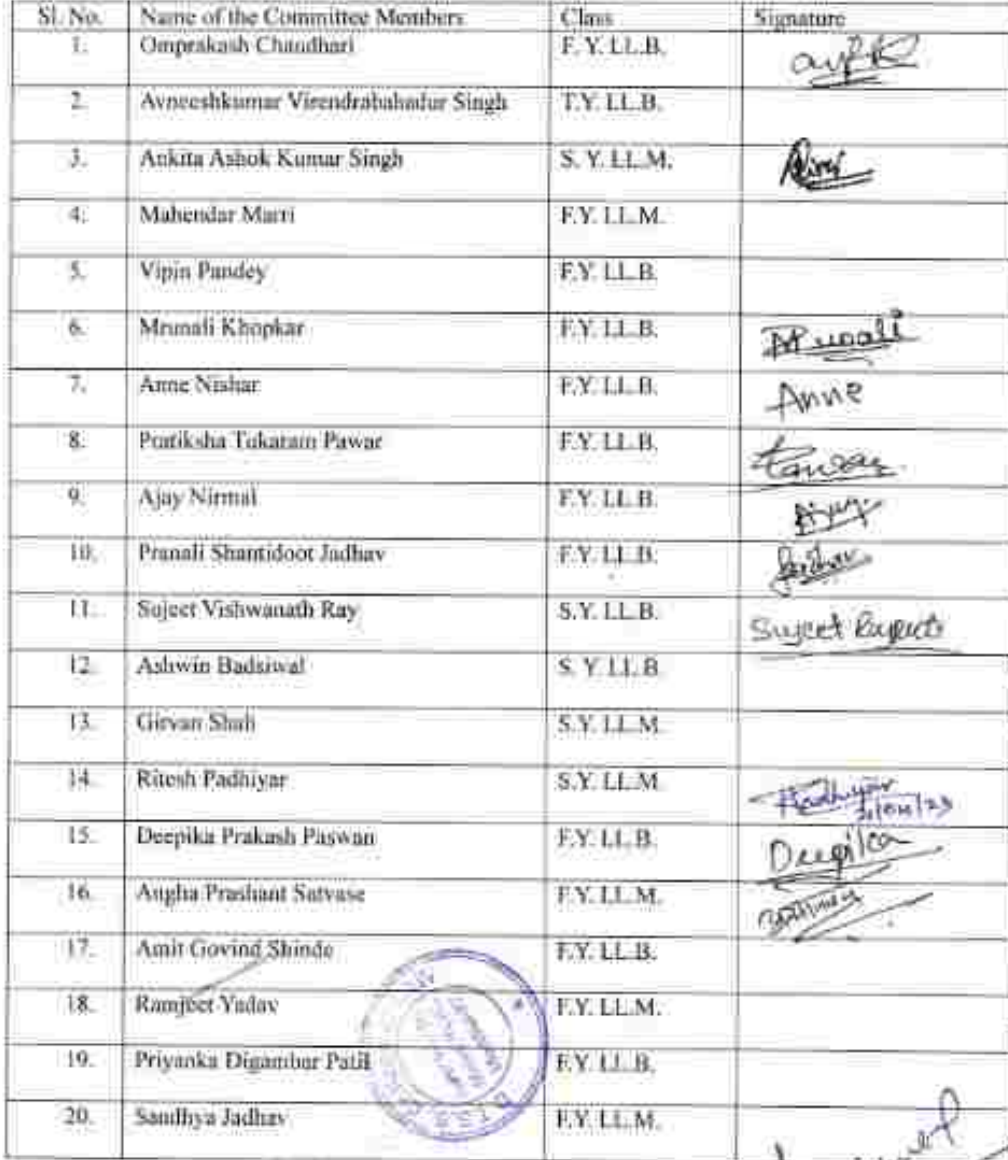 Sl. No. Name of the Committee Members Class Signature
1. Omprakash Chaudhari F. Y. LL.B.
2. Avneeshkumar Virendrabahadur Singh T.Y. LL.B.
3. Ankita Ashok Kumar Singh S. Y. LL.M.
4. Mahendar Marri F.Y. LL.M.
5. Vipin Pandey F.Y. LL.B.
6. Mrunali Khopkar F.Y. LL.B. Mrunali
7. Anne Nishar F.Y. LL.B. Anne
8. Pratiksha Tukaram Pawar F.Y. LL.B.
9. Ajay Nirmal F.Y. LL.B. Ajay
10. Pranali Shantidoot Jadhav F.Y. LL.B. Jadhav
11. Sujeet Vishwanath Ray S.Y. LL.B. Sujeet
12. Ashwin Badsiwal S. Y. LL.B.
13. Girvan Shah S.Y. LL.M.
14. Ritesh Padhiyar S.Y. LL.M. Padhiyar
15. Deepika Prakash Paswan F.Y. LL.B. Deepika
16. Augha Prashant Satvase F.Y. LL.M.
17. Amit Govind Shinde F.Y. LL.B.
18. Ramjeet Yadav F.Y. LL.M.
19. Priyanka Digambar Patil F.Y. LL.B.
20. Sandhya Jadhav F.Y. LL.M.